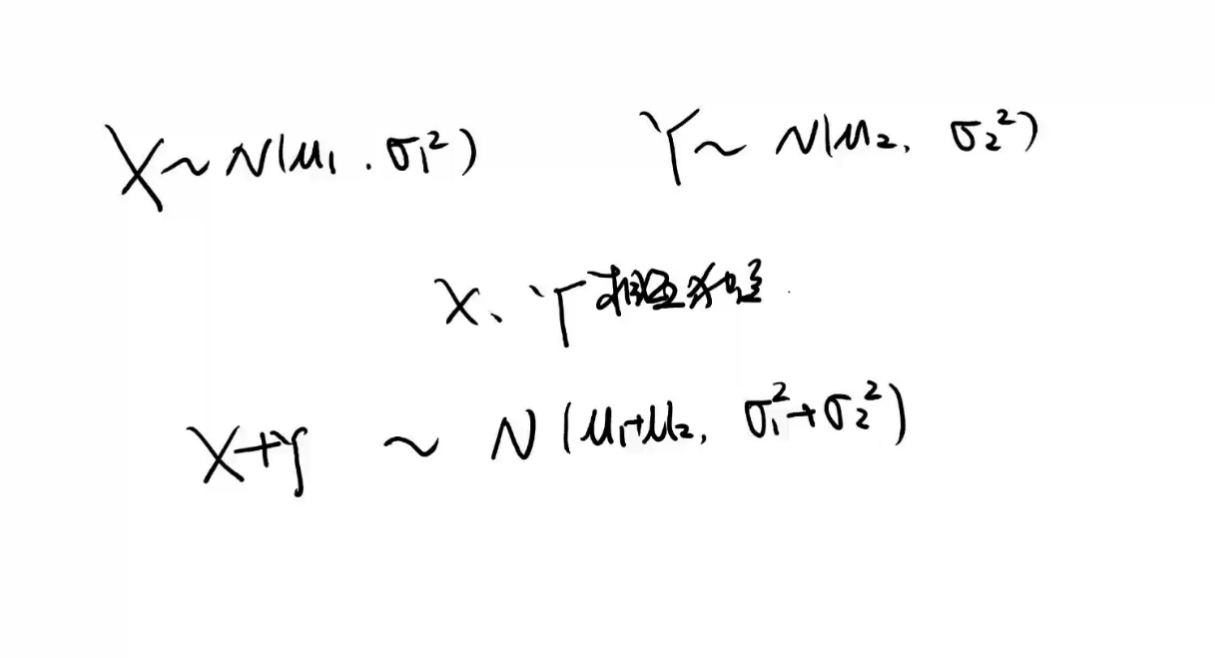 X~N(μ₁,σ₁²) Y~N(μ₂,σ₂²)
X、Y相互独立
X+Y ~ N(μ₁+μ₂, σ₁²+σ₂²)